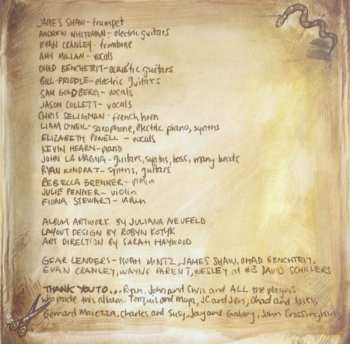 JAMES SHAW - trumpet
ANDREW WHITEMAN - electric guitars
EVAN CRANLEY - trombone
AMY MILLAN - vocals
OHAD BENCHETRIT - acoustic guitars
BILL PRIDDLE - electric guitars
SAM GOLDBERG - vocals
JASON COLLETT - vocals
CHRIS SELIGMAN - french horn
LIAM O'NEIL - saxophone, electric piano, synths
ELIZABETH POWELL - vocals
KEVIN HEARN - piano
JOHN LA MAGNA - guitars, synths, bass, many beats
RYAN KONDRAT - synths, guitars
REBECCA BRENNER - violin
JULIE PENNER - violin
FIONA STEWART - violin
ALBUM ARTWORK BY JULIANA NEUFELD
LAYOUT DESIGN BY ROBYN KOTYK
ART DIRECTION BY SARAH HAYWOOD
GEAR LENDERS - NOAH MINTZ, JAMES SHAW, OHAD BENCHETRIT,
EVAN CRANLEY, WAYNE PARENT, WESLEY at #3 DAVID SCHILLERS
THANK YOU TO... Ryan, John and Chris and ALL the players
who made this album. and Maya, JC and Jen, Ohad and Jules,
Bernard Maiezza, Charles and Susy, Jay and Gallory, John Crossingham